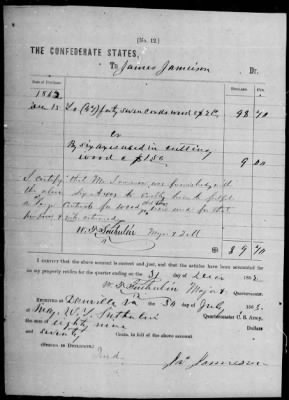 (No. 12.)
THE CONFEDERATE STATES,
To James Jamieson Dr.
Date of Purchase. Dollars. Cts.
1862
To (47) forty seven cords wood @ 2.10 98 70
Cr
By six axes used in cutting
wood @ $1.50 9 00
I certify that Mr Jamieson was furnished with
the above
for wood
purpose & not returned
W. T. Sutherlin Maj & QM
$ 89 70
I CERTIFY that the above account is correct and just, and that the articles have been accounted for
on my property return for the quarter ending on the 31 day of Decr 1862
W. T. Sutherlin Major & Quartermaster.
RECEIVED at Danville Va the 30 of July 1863, of
Maj. W. T. Sutherlin Quartermaster C. S. Army,
the sum of eighty nine Dollars
and seventy Cents, in full of the above account
(SIGNED IN DUPLICATE.)
Jas Jamieson